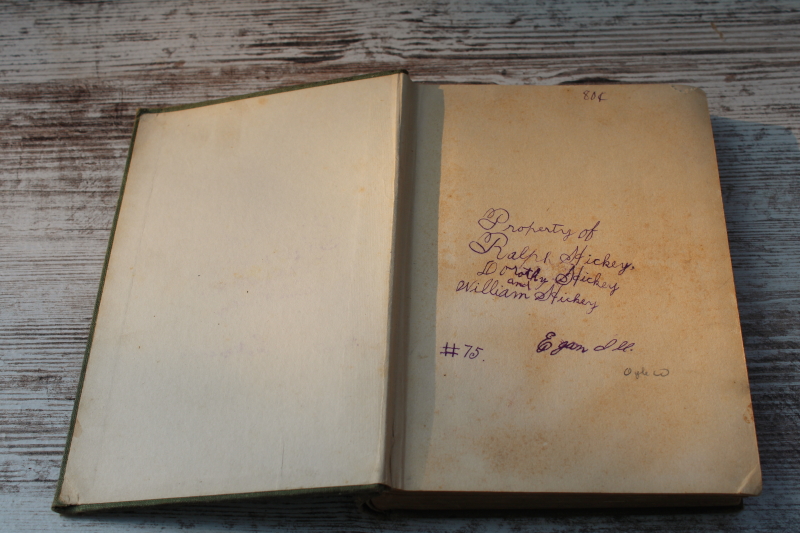 80¢
Property of
Ralph Hickey,
Dorothy Hickey
and
William Hickey
#75.
Egan Ill.
Ogle Co